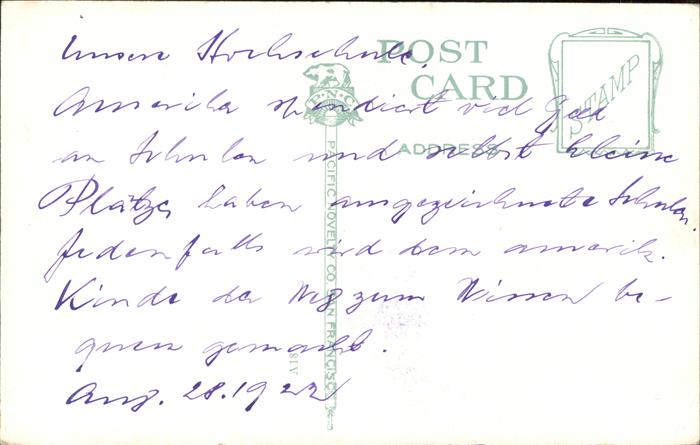 Unsere Hochschule.
POST
CARD
STAMP
P.N.C.
Amerika spendiert viel Geld
an Schulen und selbst kleine
ADDRESS
Plätze haben ausgezeichnete Schulen.
Jedenfalls wird dem amerik.
Kinde der Weg zum Wissen be-
quem gemacht.
Aug. 28. 1922
PACIFIC NOVELTY CO. SAN FRANCISCO